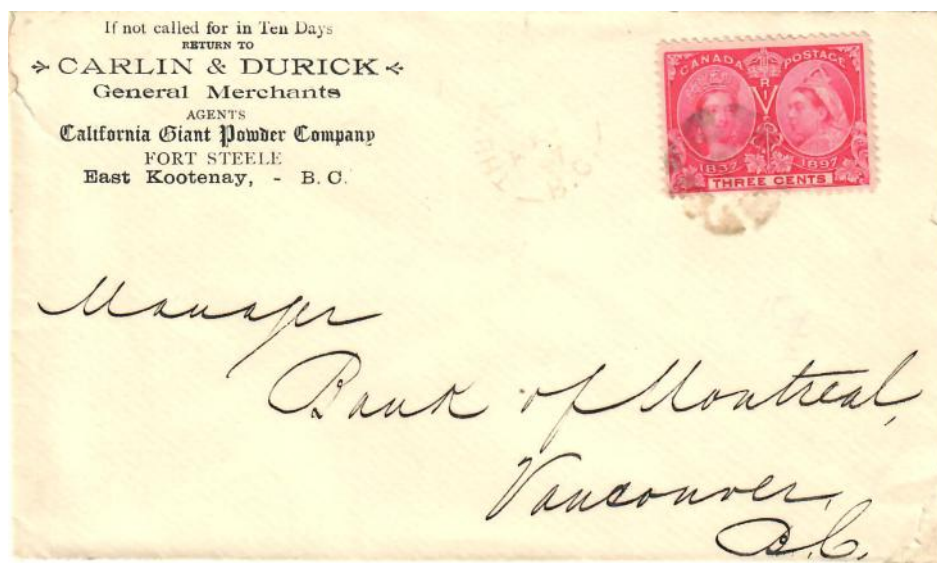 If not called for in Ten Days
RETURN TO
CARLIN & DURICK
General Merchants
AGENTS
California Giant Powder Company
FORT STEELE
East Kootenay, - B. C.
CANADA POSTAGE
V R I
1837 1897
THREE CENTS
Manager
Bank of Montreal,
Vancouver,
B.C.